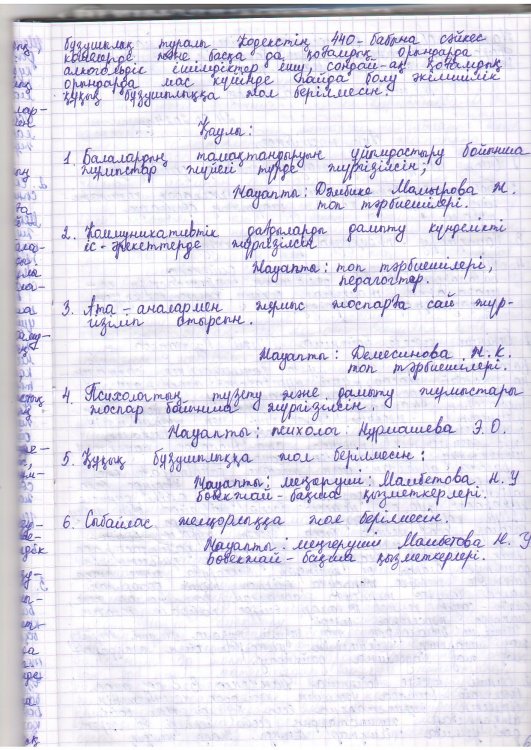 бұзушылық туралы Кодекстің 440-бабына сәйкес
көшелерде және басқа да қоғамдық орындарда
алкогольдік ішімдіктер ішу, сондай-ақ қоғамдық
орындарда мас күйінде пайда болу әкімшілік
құқық бұзушылыққа жол берілмесін.
Қаулы:
1. Балалардың тамақтандыруын ұйымдастыру бойынша
жұмыстар жүйелі түрде жүргізілсін;
Жауапты: Мамырова Ж.
топ тәрбиешілері.
2. Коммуникативтік дағдыларды дамыту күнделікті
іс-әрекеттерде жүргізілсін
Жауапты: топ тәрбиешілері,
педагогтар.
3. Ата-аналармен жұмыс жоспарға сай жүр-
гізіліп отырсын.
Жауапты: Демесинова Ж.К.
топ тәрбиешілері.
4. Психологтың түзету және дамыту жұмыстары
жоспар бойынша жүргізілсін.
Жауапты: психолог Нұрмашева Э.О.
5. Құқық бұзушылыққа жол берілмесін:
Жауапты: меңгеруші: Мамбетова Н.У
бөбекжай-бақша қызметкерлері.
6. Сыбайлас жемқорлыққа жол берілмесін.
Жауапты: меңгеруші Мамбетова Н.У
бөбекжай-бақша қызметкерлері.